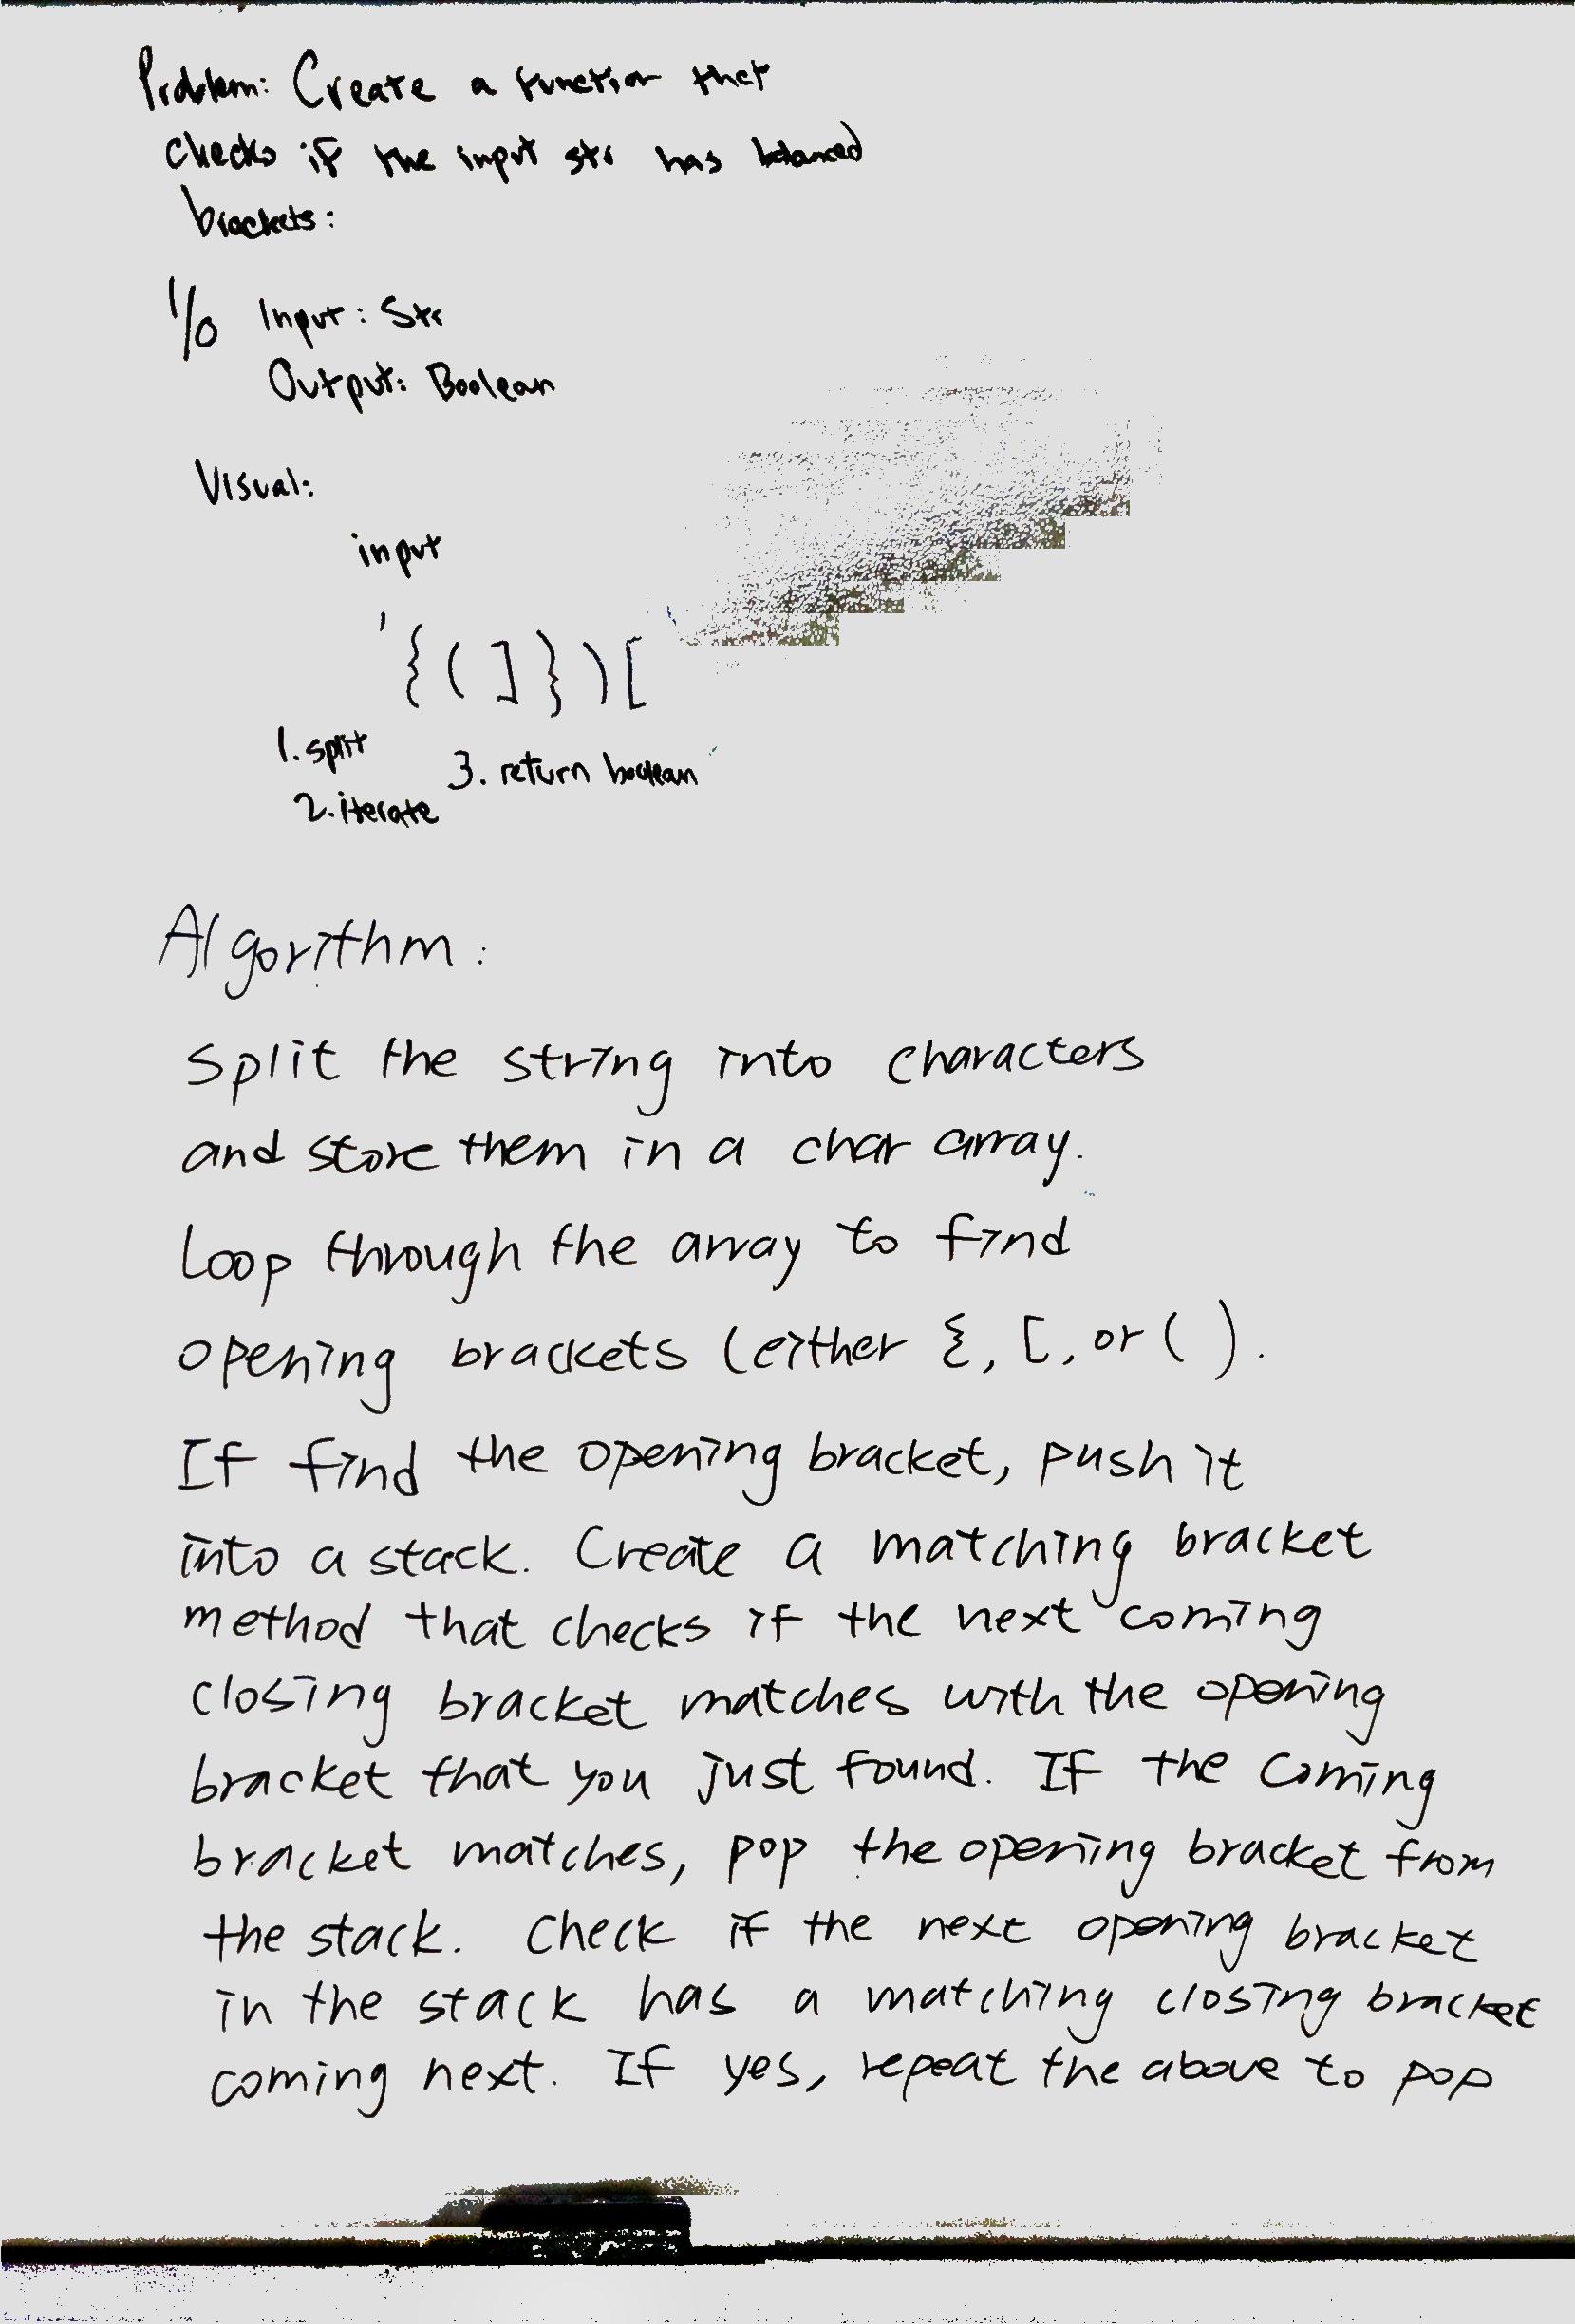 Problem: Create a function that
checks if the input str has balanced
brackets:
I/O Input: Str
Output: Boolean
Visual:
input
'{(]})[
1. split
3. return boolean
2. iterate
Algorithm:
Split the string into characters
and store them in a char array.
Loop through the array to find
opening brackets (either {, [, or ( ).
If find the opening bracket, push it
into a stack. Create a matching bracket
method that checks if the next coming
closing bracket matches with the opening
bracket that you just found. If the coming
bracket matches, pop the opening bracket from
the stack. Check if the next opening bracket
in the stack has a matching closing bracket
coming next. If yes, repeat the above to pop